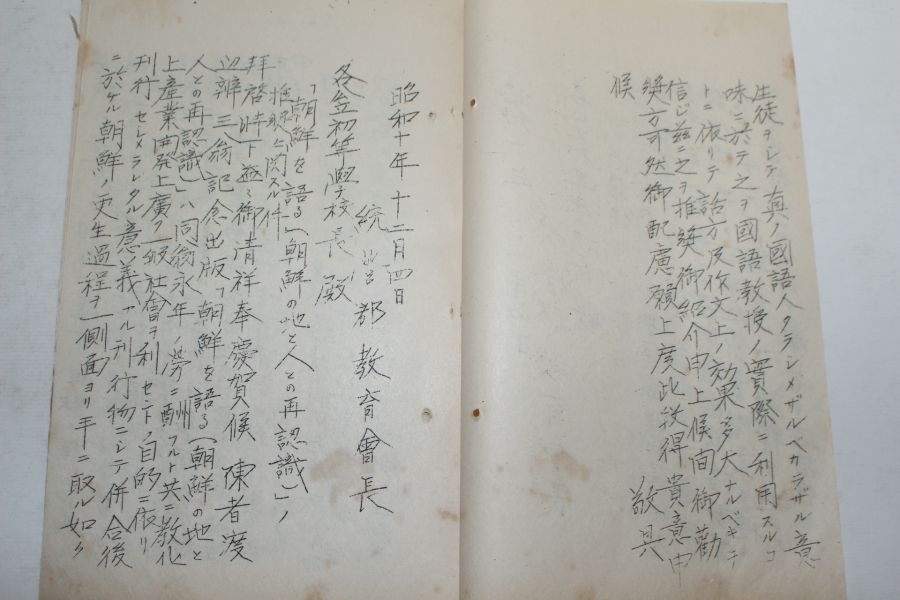 生徒ヲシテ真ノ國語人タラシメザルベカラザル意
味ニ於テ之ヲ國語教授ノ實際ニ利用スルコ
トニ依リテ話方及作文上ノ効果多大ナルベキヲ
信ジ茲ニ之ヲ推奨御紹介申上候間御勸
奨方可然御配慮願上度此段得貴意申
候 敬具
昭和十年十二月四日
統營郡教育會長
各公初等學校長殿
「朝鮮を語る」(朝鮮の地と人との再認識)ノ
推奨ニ関スル件
拝啓時下益々御清祥奉慶賀候 陳者度
辺辨三翁記念出版「朝鮮を語る(朝鮮の地と
人との再認識)」ハ同翁永年ノ勞ニ酬フルト共ニ教化
上産業開発上廣ク一般社會ヲ利セントノ目的ニ依リ
刊行セシメラレタル意義アル刊行物ニシテ併合後
ニ於ケル朝鮮ノ更生過程ヲ一側面ヨリ手ニ取ル如ク